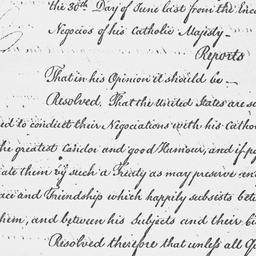 the 30th Day of June last from the
Negocios of his Catholic Majesty—
Reports
That in his Opinion it should be—
Resolved. That the United States are
to conduct their Negotiations with his
the greatest candor and good Humour, and if
them by such a Treaty as may preserve
and Friendship which happily subsists
and between his Subjects and their
Resolved therefore that unless all